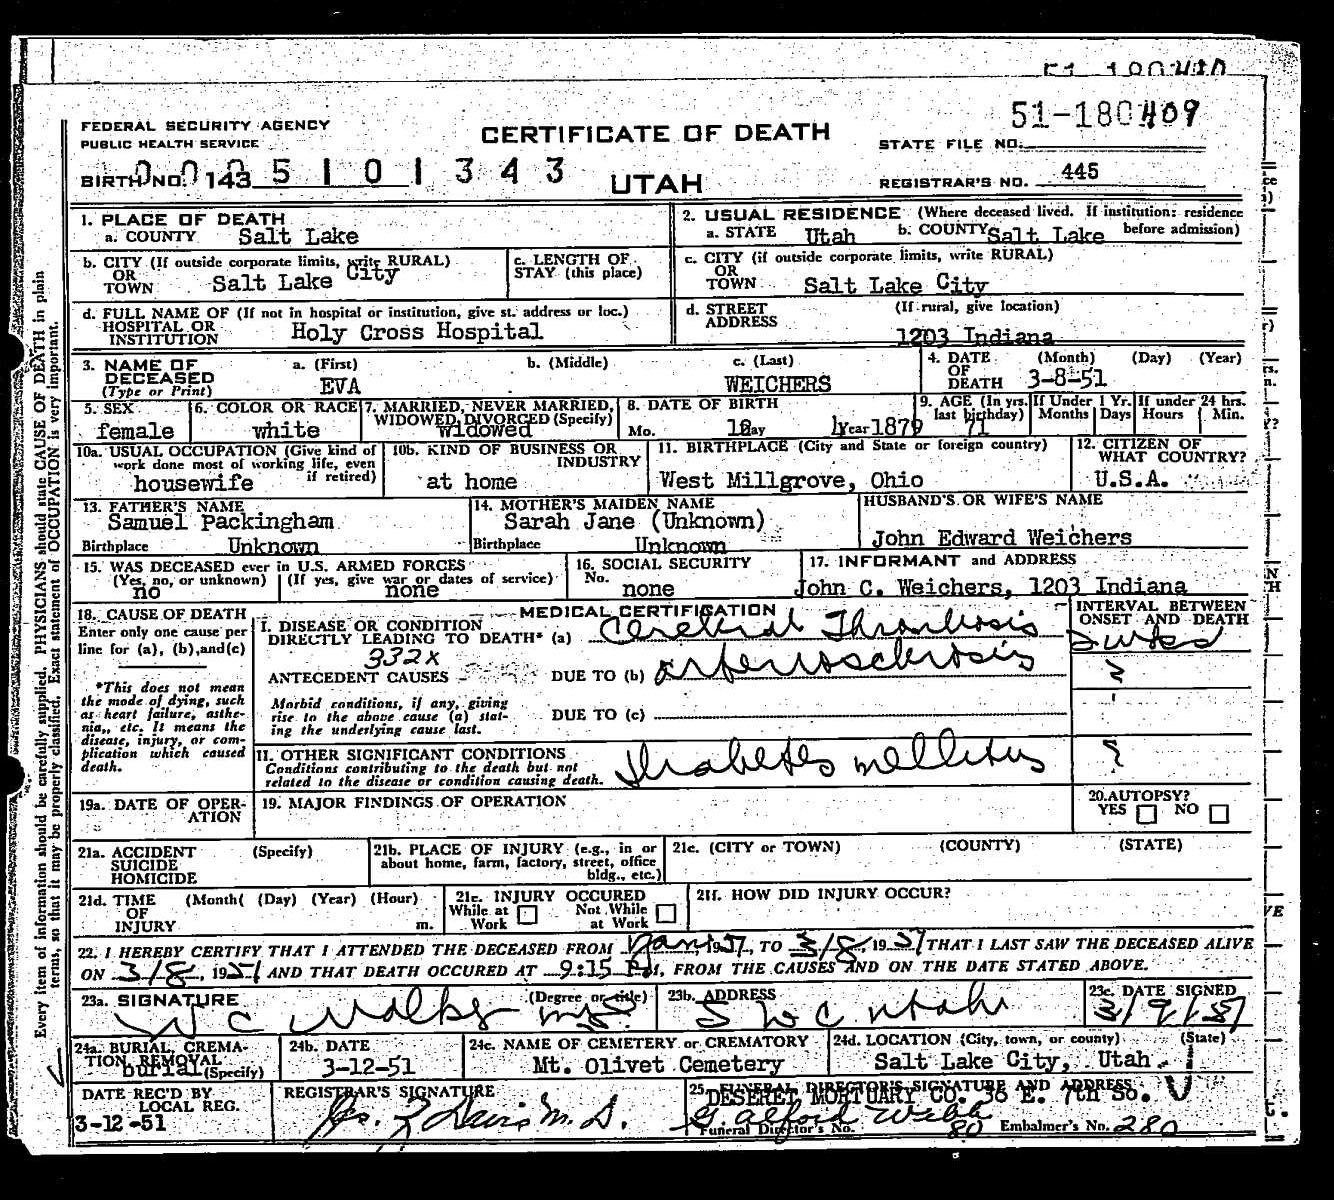 51-180409
FEDERAL SECURITY AGENCY
PUBLIC HEALTH SERVICE
CERTIFICATE OF DEATH
STATE FILE NO.
BIRTH NO. 143 5 1 0 1 3 4 3
UTAH
REGISTRAR'S NO. 445
1. PLACE OF DEATH
a. COUNTY Salt Lake
2. USUAL RESIDENCE (Where deceased lived. If institution: residence before admission)
a. STATE Utah b. COUNTY Salt Lake
b. CITY (If outside corporate limits, write RURAL)
OR TOWN Salt Lake City
c. LENGTH OF STAY (this place)
c. CITY (if outside corporate limits, write RURAL)
OR TOWN Salt Lake City
d. FULL NAME OF (If not in hospital or institution, give st. address or loc.)
HOSPITAL OR INSTITUTION Holy Cross Hospital
d. STREET ADDRESS (If rural, give location)
1203 Indiana
3. NAME OF DECEASED (Type or Print)
a. (First) b. (Middle) c. (Last)
EVA WEICHERS
4. DATE OF DEATH (Month) (Day) (Year)
3-8-51
5. SEX
female
6. COLOR OR RACE
white
7. MARRIED, NEVER MARRIED, WIDOWED, DIVORCED (Specify)
widowed
8. DATE OF BIRTH
Mo. Day Year 1879
9. AGE (In yrs. last birthday) 71
If Under 1 Yr. Months Days
If under 24 hrs. Hours Min.
10a. USUAL OCCUPATION (Give kind of work done most of working life, even if retired)
housewife
10b. KIND OF BUSINESS OR INDUSTRY
at home
11. BIRTHPLACE (City and State or foreign country)
West Millgrove, Ohio
12. CITIZEN OF WHAT COUNTRY?
U.S.A.
13. FATHER'S NAME
Samuel Packingham
Birthplace Unknown
14. MOTHER'S MAIDEN NAME
Sarah Jane (Unknown)
Birthplace Unknown
HUSBAND'S OR WIFE'S NAME
John Edward Weichers
15. WAS DECEASED ever in U.S. ARMED FORCES
(Yes, no, or unknown) (If yes, give war or dates of service)
no none
16. SOCIAL SECURITY
No. none
17. INFORMANT and ADDRESS
John C. Weichers, 1203 Indiana
18. CAUSE OF DEATH
Enter only one cause per line for (a), (b), and (c)
*This does not mean the mode of dying, such as heart failure, asthenia, etc. It means the disease, injury, or complication which caused death.
MEDICAL CERTIFICATION
I. DISEASE OR CONDITION
DIRECTLY LEADING TO DEATH* (a) Cerebral Thrombosis
332X
ANTECEDENT CAUSES DUE TO (b) arteriosclerosis
Morbid conditions, if any, giving rise to the above cause (a) stating the underlying cause last.
DUE TO (c)
II. OTHER SIGNIFICANT CONDITIONS
Conditions contributing to the death but not related to the disease or condition causing death.
Diabetes mellitus
INTERVAL BETWEEN ONSET AND DEATH
?
?
19a. DATE OF OPERATION
19. MAJOR FINDINGS OF OPERATION
20. AUTOPSY?
YES NO
21a. ACCIDENT SUICIDE HOMICIDE (Specify)
21b. PLACE OF INJURY (e.g., in or about home, farm, factory, street, office bldg., etc.)
21c. (CITY or TOWN) (COUNTY) (STATE)
21d. TIME OF INJURY (Month( (Day) (Year) (Hour) m.
21e. INJURY OCCURED
While at Work Not While at Work
21f. HOW DID INJURY OCCUR?
22. I HEREBY CERTIFY THAT I ATTENDED THE DECEASED FROM Jan, 1951, TO 3/8 1951 THAT I LAST SAW THE DECEASED ALIVE
ON 3/8, 1951 AND THAT DEATH OCCURED AT 9:15 P.M., FROM THE CAUSES AND ON THE DATE STATED ABOVE.
23a. SIGNATURE (Degree or title)
W C M.D.
23b. ADDRESS
S L C Utah
23c. DATE SIGNED
3/9/51
24a. BURIAL, CREMATION, REMOVAL (Specify)
burial
24b. DATE
3-12-51
24c. NAME OF CEMETERY or CREMATORY
Mt. Olivet Cemetery
24d. LOCATION (City, town, or county) (State)
Salt Lake City, Utah
DATE REC'D BY LOCAL REG.
3-12-51
REGISTRAR'S SIGNATURE
Davis M.D.
25. FUNERAL DIRECTOR'S SIGNATURE AND ADDRESS
DESERET MORTUARY CO. 36 E. 7th So.
G. Alford Webb
Funeral Director's No. 80 Embalmer's No. 280
Every item of information should be carefully supplied. PHYSICIANS should state CAUSE OF DEATH in plain
terms, so that it may be properly classified. Exact statement of OCCUPATION is very important.